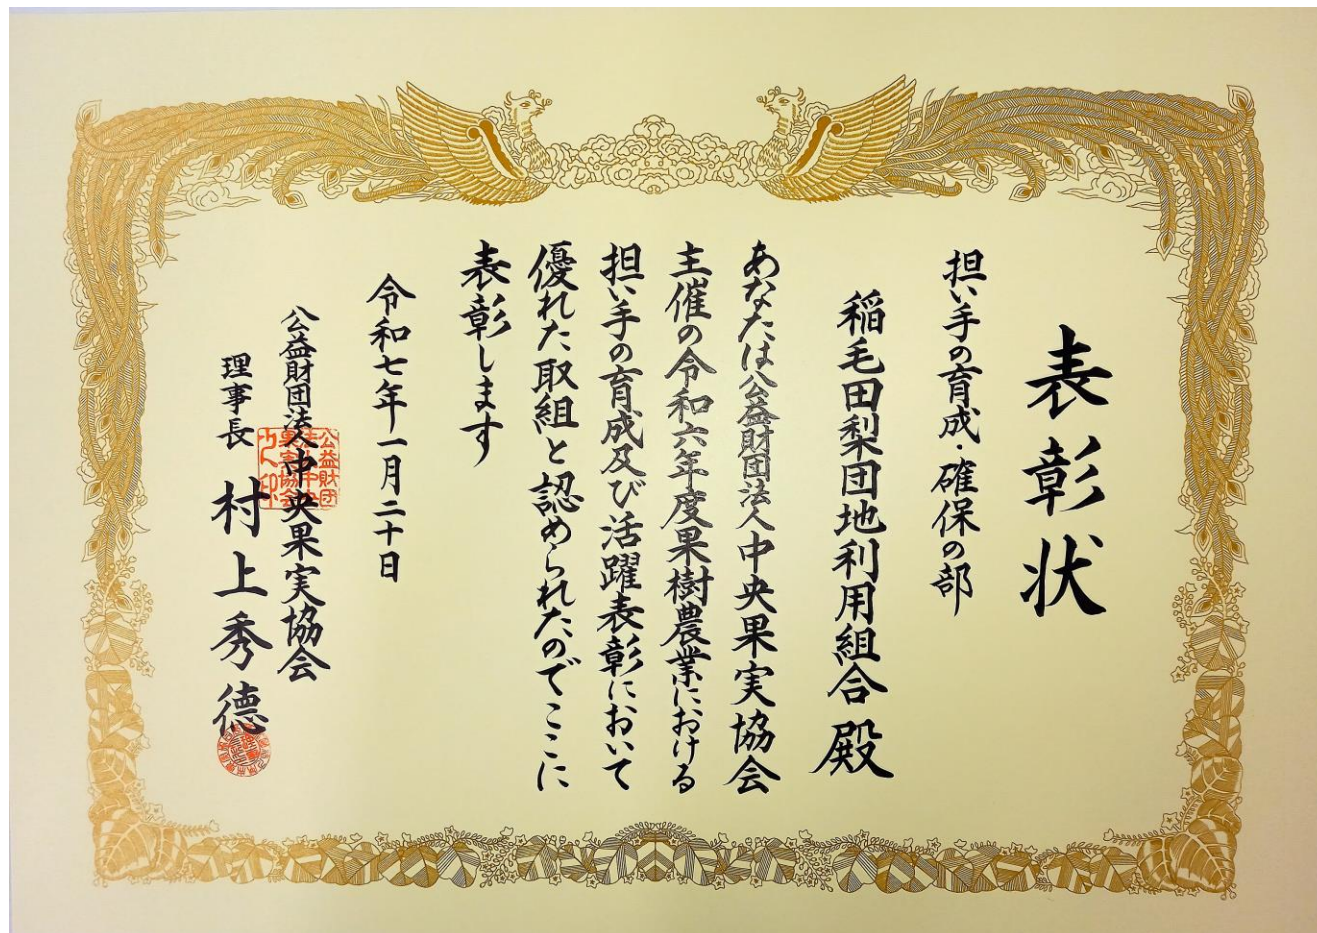 表彰状
担い手の育成・確保の部
稲毛田梨団地利用組合殿
あなたは公益財団法人中央果実協会
主催の令和六年度果樹農業における
担い手の育成及び活躍表彰において
優れた取組と認められたのでここに
表彰します
令和七年一月二十日
公益財団法人中央果実協会
理事長 村上秀德